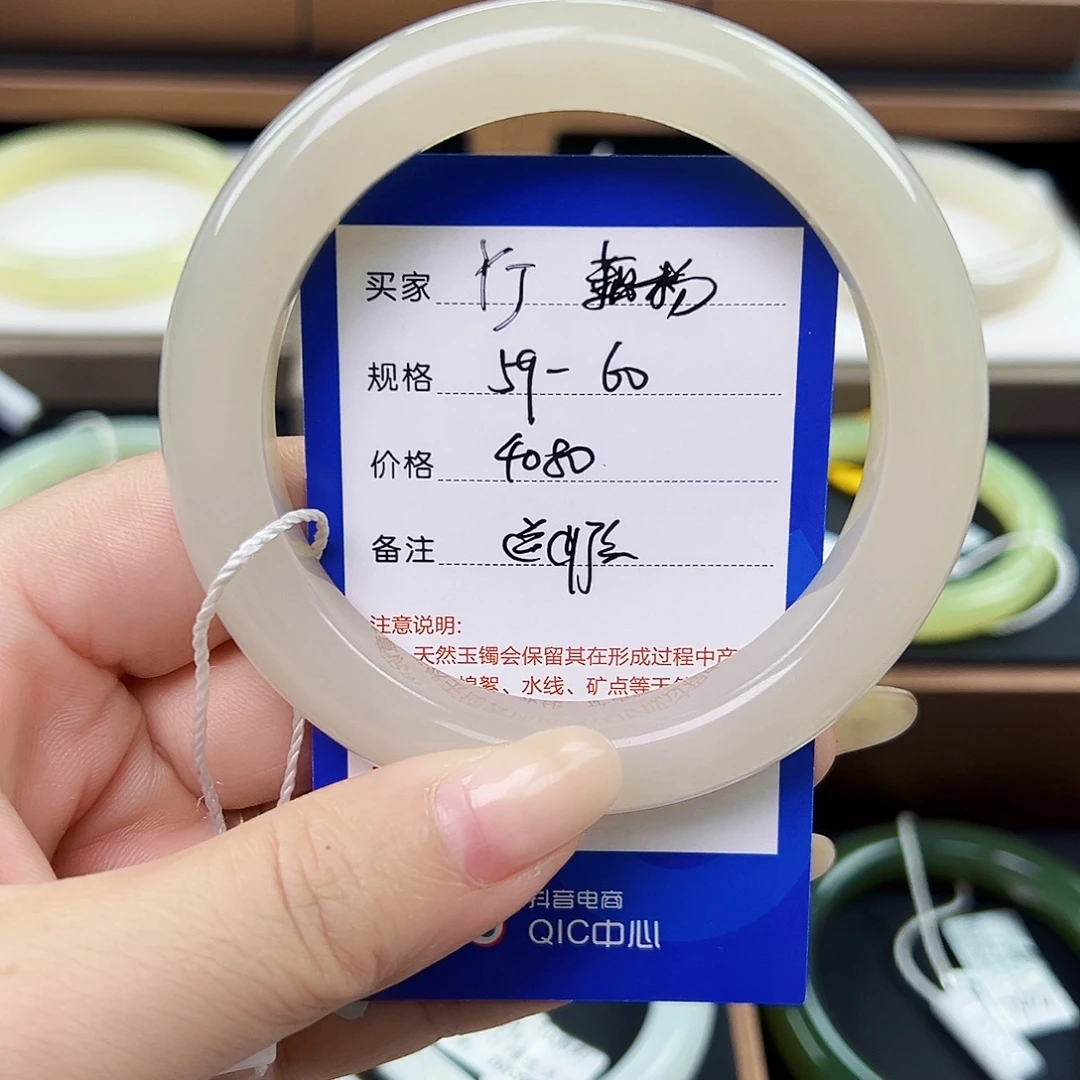 买家
规格 59-60
价格 4080
备注
注意说明:
天然玉镯会保留其在形成过程中产
棉絮、水线、矿点等天然
抖音电商
QIC中心